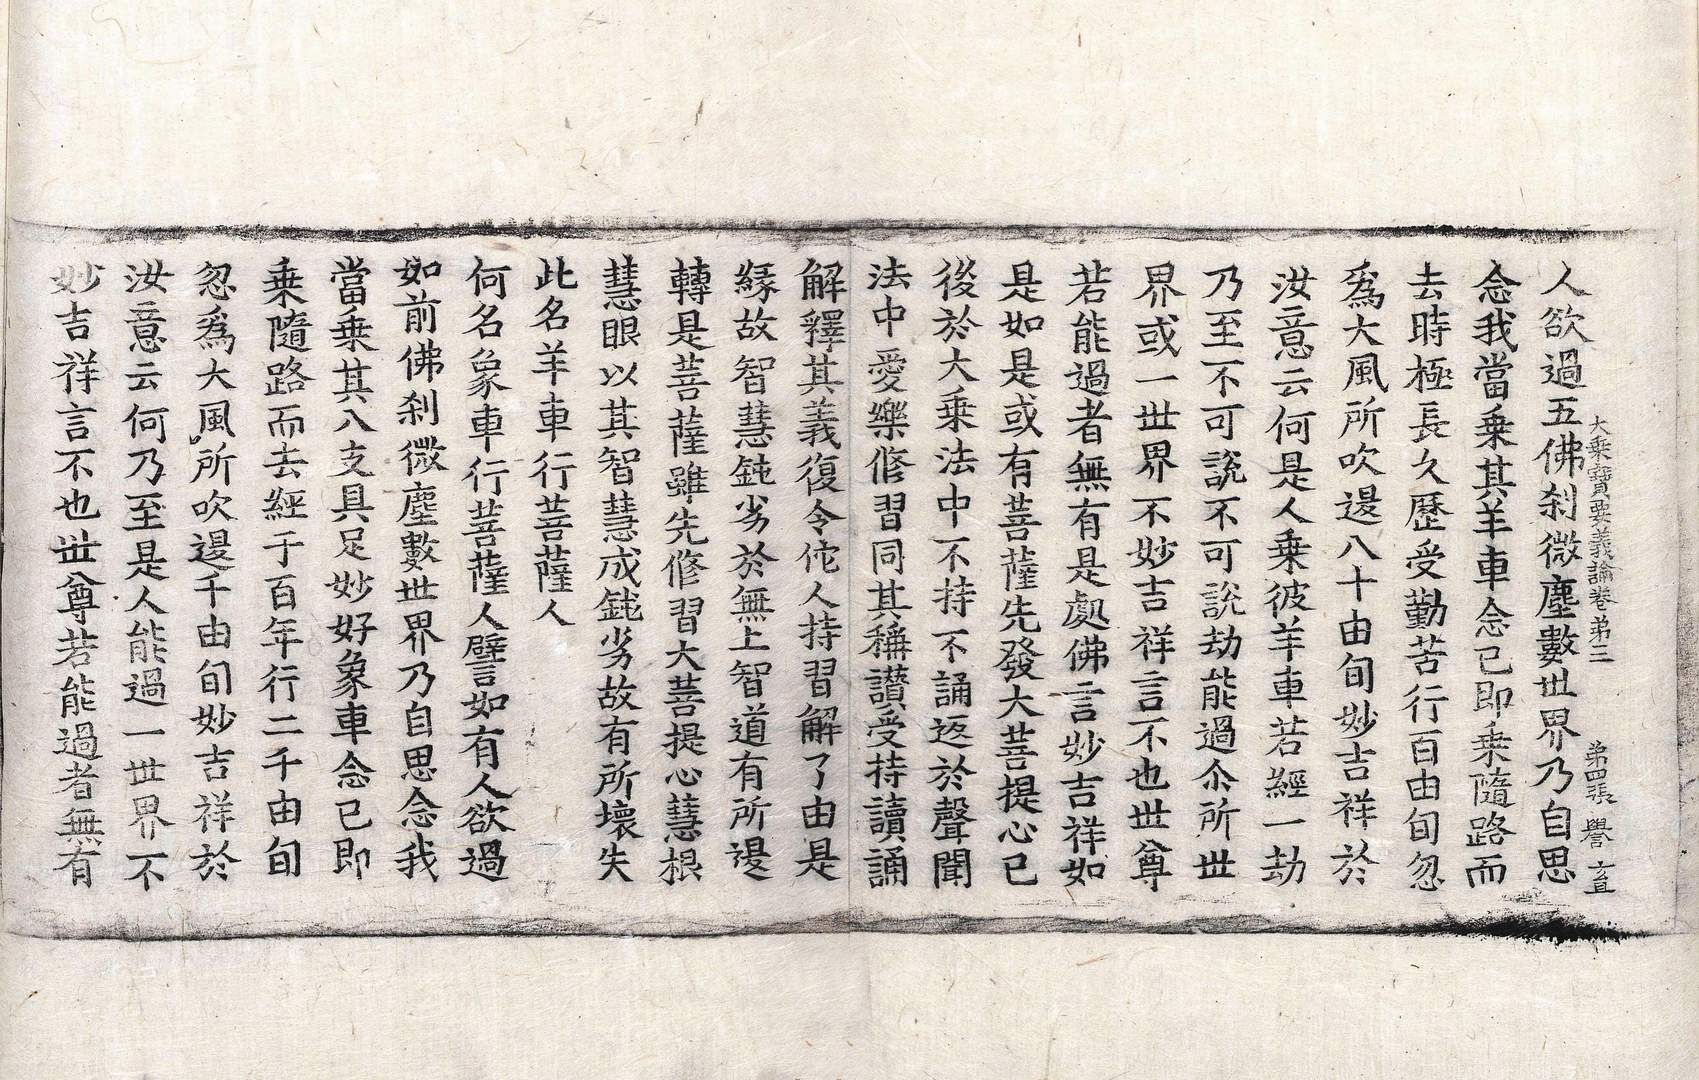 大乘寶要義論卷第三　第四張　譽　玄
人欲過五佛刹微塵數世界乃自思
念我當乘其羊車念已即乘隨路而
去時極長久歷受勤苦行百由旬忽
爲大風所吹退八十由旬妙吉祥於
汝意云何是人乘彼羊車若經一劫
乃至不可說不可說劫能過尒所世
界或一世界不妙吉祥言不也世尊
若能過者無有是處佛言妙吉祥如
是如是或有菩薩先發大菩提心已
後於大乘法中不持不誦返於聲聞
法中愛樂修習同其稱讚受持讀誦
解釋其義復令佗人持習解了由是
緣故智慧鈍劣於無上智道有所退
轉是菩薩雖先修習大菩提心慧根
慧眼以其智慧成鈍劣故有所壞失
此名羊車行菩薩人
何名象車行菩薩人譬如有人欲過
如前佛刹微塵數世界乃自思念我
當乘其八支具足妙好象車念已即
乘隨路而去經于百年行二千由旬
忽爲大風所吹退千由旬妙吉祥於
汝意云何乃至是人能過一世界不
妙吉祥言不也世尊若能過者無有